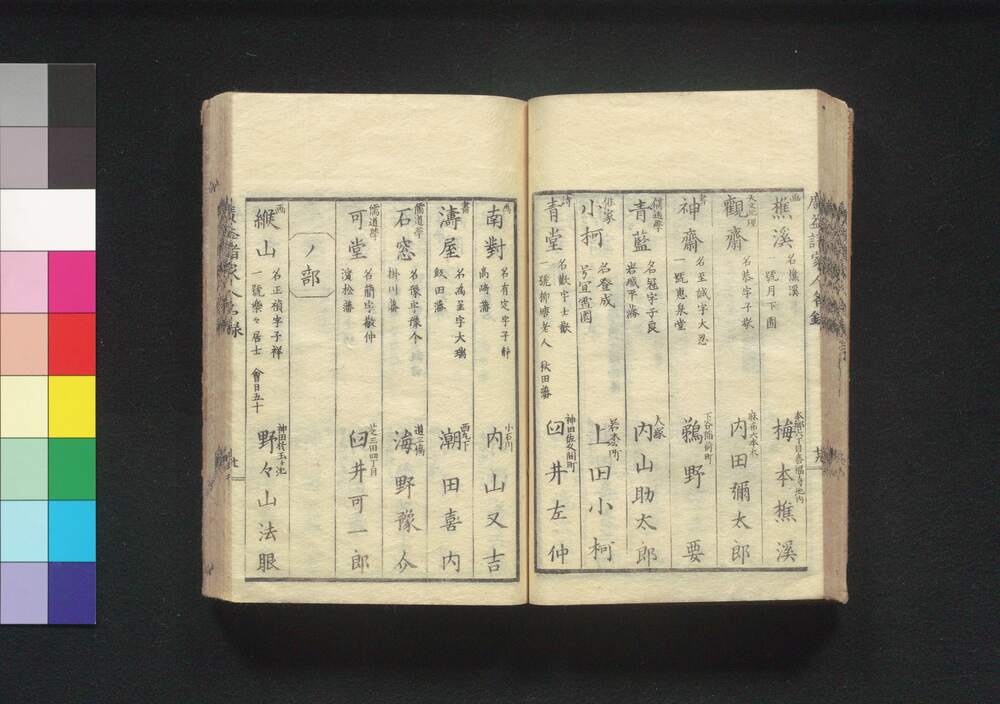 画 樵溪 名樵溪 一號月下園 本郷六丁目喜福寺地内 梅本樵溪
天文地理 觀齋 名恭字子敬 麻布六本木 内田彌太郎
書 神齋 名至誠字大忍 一號惠泉堂 下谷御前町 鵜野要
儒道學 青藍 名冠字子良 岩城平藩 内山助太郎
俳家 小柯 名登成 号宜雪園 上田小柯
詩 青堂 名歡字士歡 一號柳塘老人 秋田藩 神田佐久間町 臼井左仲
画 南對 名有定字子静 高崎藩 小石川 内山又吉
書 濤屋 名為呈字大璃 飯田藩 西丸下 潮田喜内
儒道學 石窓 名豫字豫介 掛川藩 道三橋 海野豫介
儒道學 可堂 名簡字敬仲 濱松藩 芝三田四丁目 臼井可一郎
ノ部
画 緱山 名正禎字子祥 一號樂々居士 會日五十 神田於玉ヶ池 野々山法眼
廣益諸家人名録